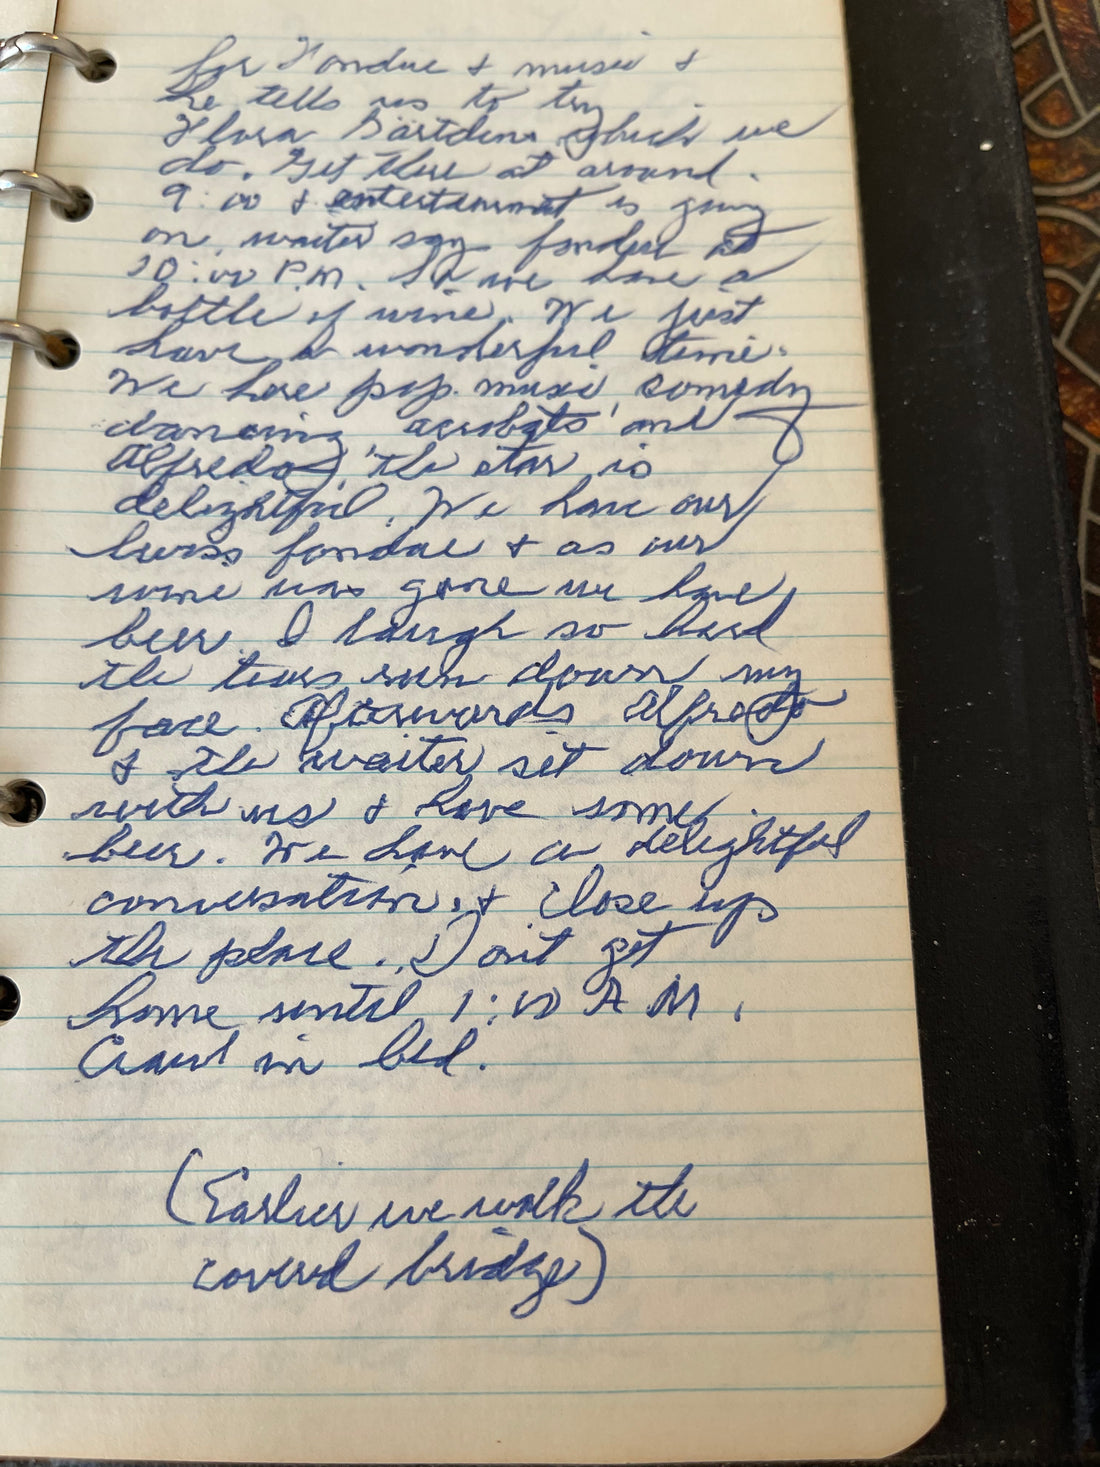 for Fondue & music &
he tells us to try
Flora Gärtdens which we
do. Get there at around.
9:00 & entertainment is going
on, waiter say fondue at
10:00 P.M. So we have a
bottle of wine. We just
have a wonderful time.
We have pop music, comedy
dancing, acrobats and
Alfredo, the star is
delightful. We have our
Swiss fondue & as our
wine was gone we have
beer. I laugh so hard
the tears run down my
face. Afterwards Alfredo
& the waiter set down
with us & have some
beer. We have a delightful
conversation, & close up
the place. Don't get
home until 1:00 A.M.
Crawl in bed.
(Earlier we walk the
covered bridge)